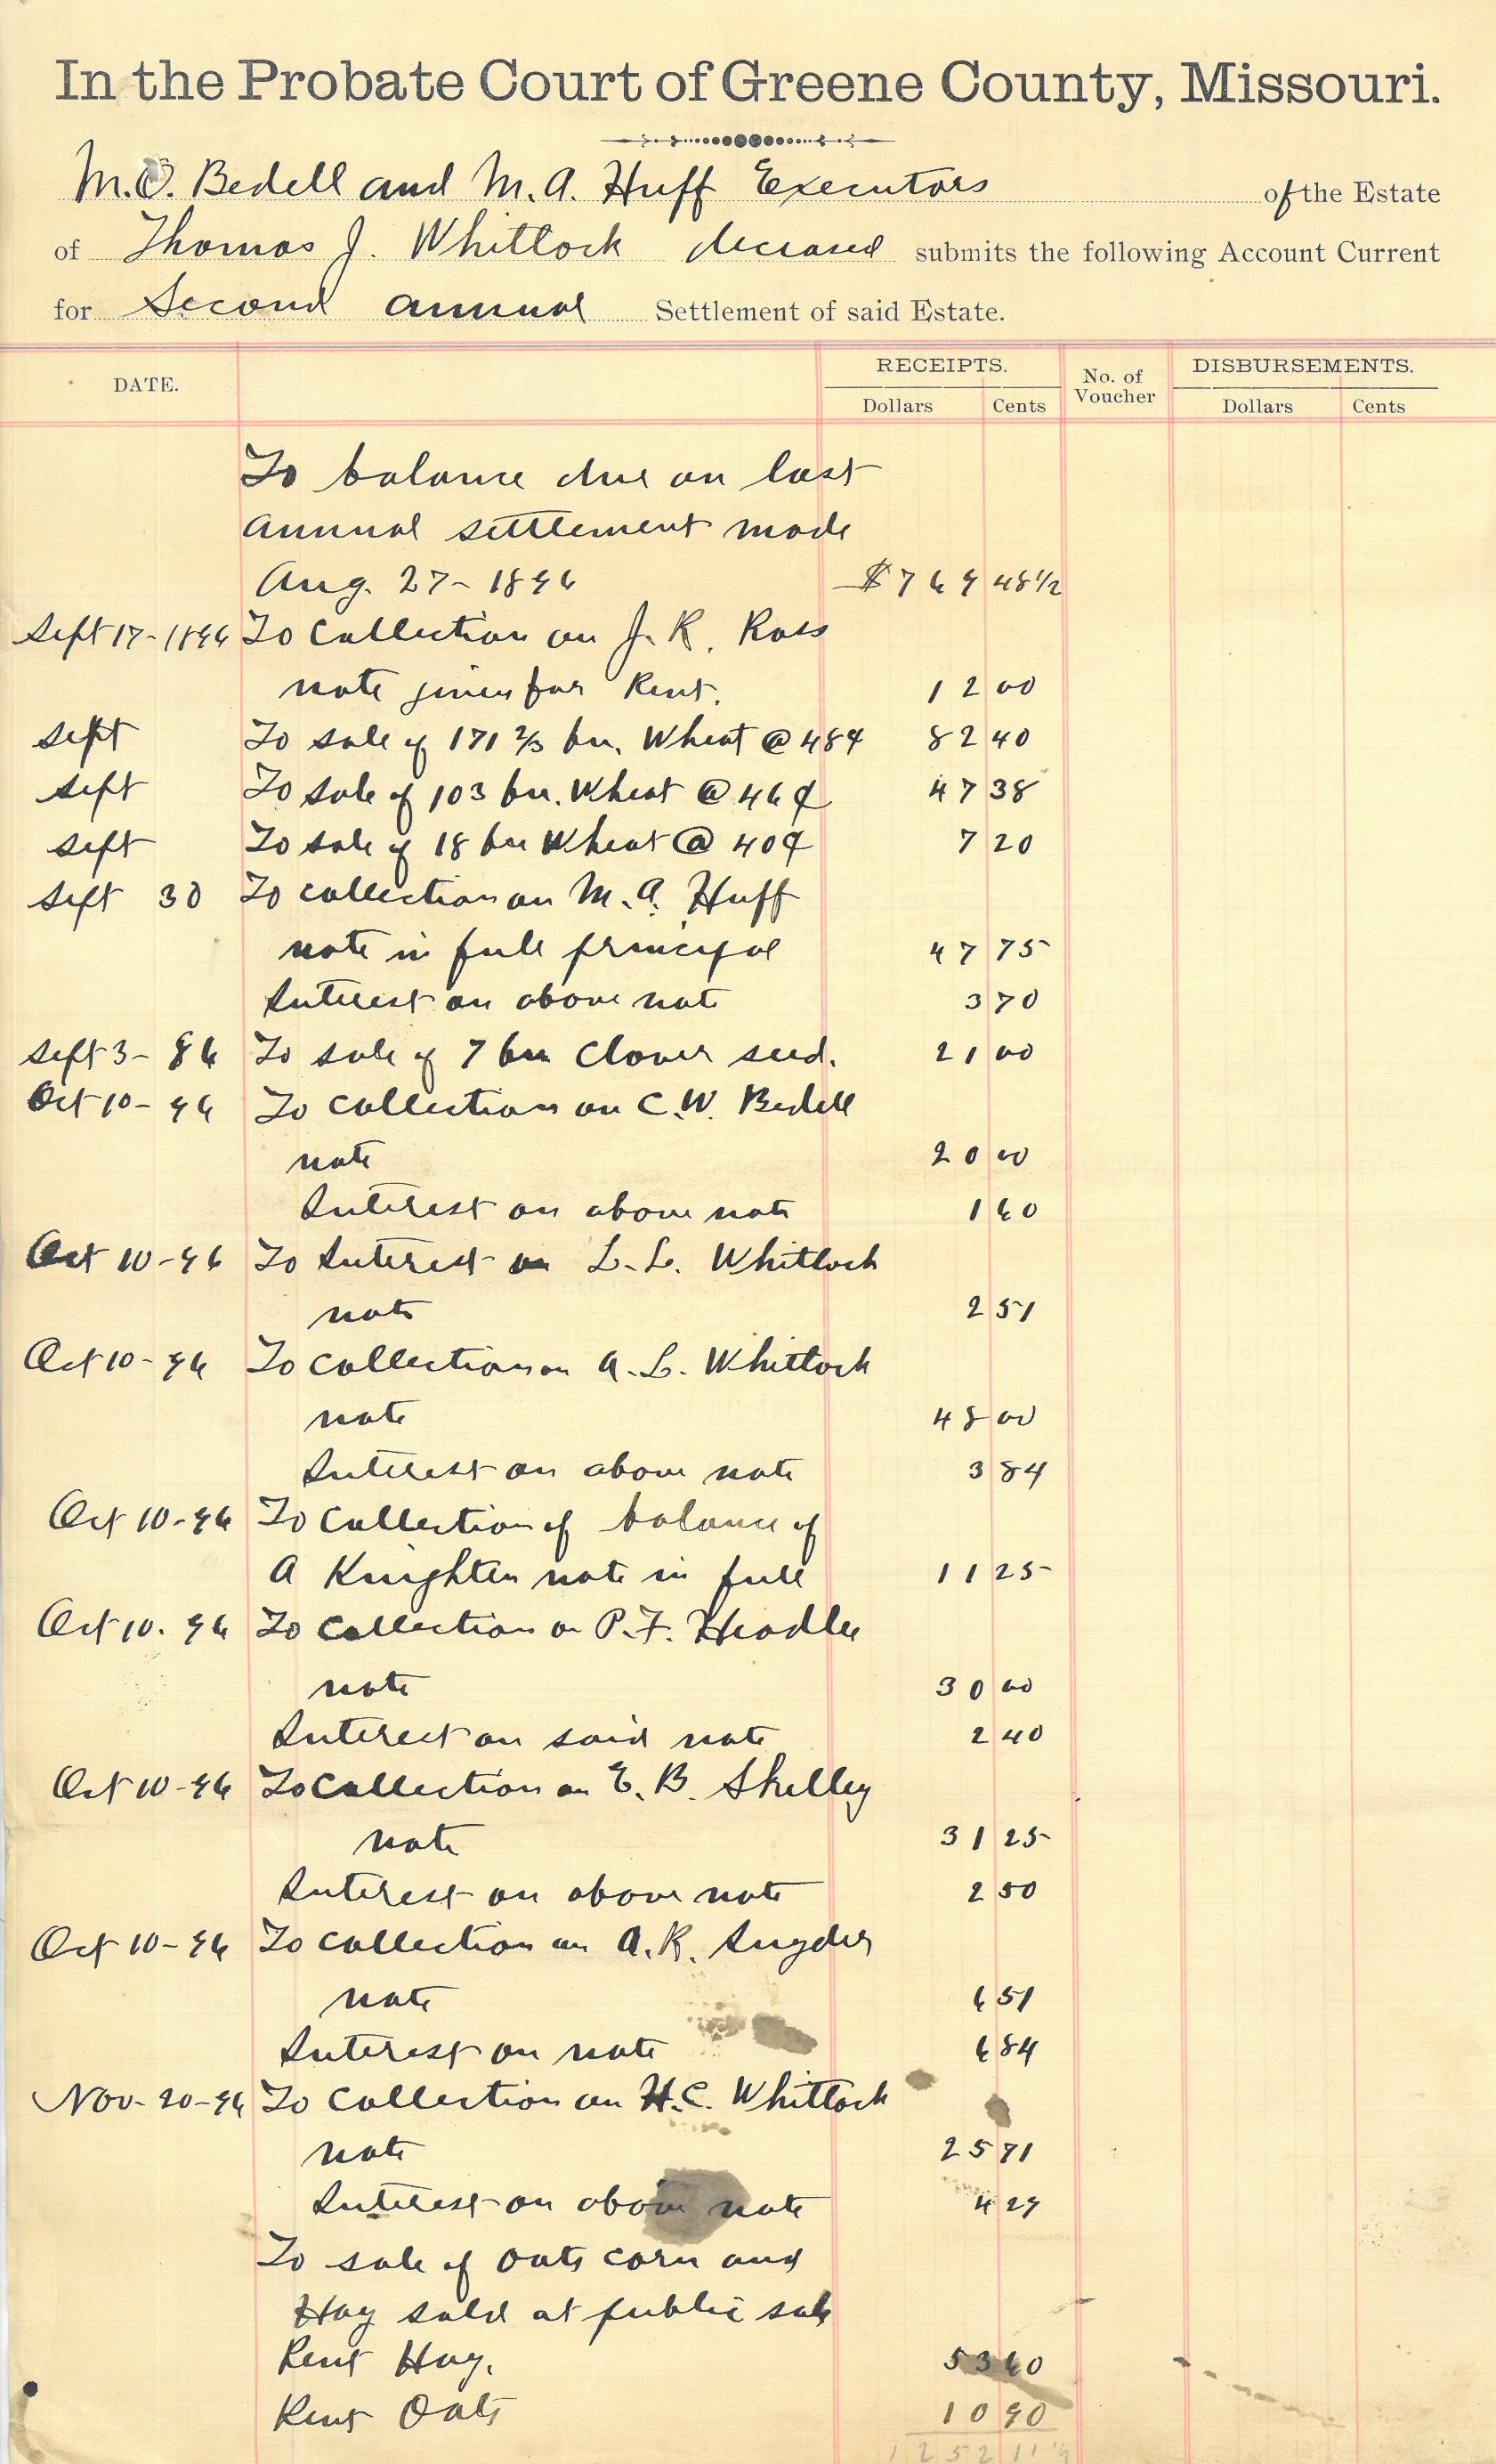 In the Probate Court of Greene County, Missouri.
M.O. Bedell and M.A. Huff Executors of the Estate
of Thomas J. Whitlock deceased submits the following Account Current
for Second annual Settlement of said Estate.
DATE. RECEIPTS. No. of Voucher DISBURSEMENTS.
Dollars Cents Dollars Cents
To balance due on last
annual settlement made
Aug. 27- 1896 $769 48½
Sept 17-1896 To collection on J.R. Ross
note given for Rent. 12 00
Sept To sale of 171 2/3 bu. Wheat @ 48¢ 82 40
Sept To sale of 103 bu. Wheat @ 46¢ 47 38
Sept To sale of 18 bu Wheat @ 40¢ 7 20
Sept 30 To collection on M.A. Huff
note in full principal 47 75
Interest on above note 3 70
Sept 3- 96 To sale of 7 bu Clover seed. 21 00
Oct 10- 96 To collection on C.W. Bedell
note 20 00
Interest on above note 1 60
Oct 10-96 To Interest on L.L. Whitlock
note 2 51
Oct 10-96 To collection on A.L. Whitlock
note 48 00
Interest on above note 3 84
Oct 10-96 To collection of balance of
A Knighten note in full 11 25
Oct 10. 96 To collection on P.F. Headlee
note 30 00
Interest on said note 2 40
Oct 10-96 To collection on E.B. Shelley
note 31 25
Interest on above note 2 50
Oct 10-96 To collection on A.R. Snyder
note 6 51
Interest on note 6 84
Nov-20-96 To collection on H.C. Whitlock
note 25 71
Interest on above note 4 29
To sale of oats corn and
Hay sold at public sale
Rent Hay. 53 60
Rent Oats 10 90
1252 11½